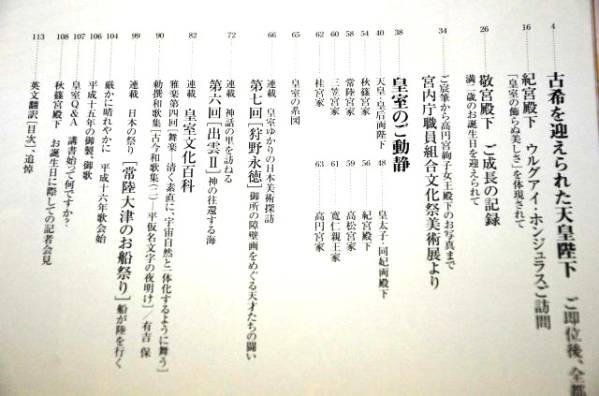 4 古希を迎えられた天皇陛下 ご即位後、全都
16 紀宮殿下 ウルグアイ・ホンジュラスご訪問
「皇室の飾らぬ美しさ」を体現されて
26 敬宮殿下 ご成長の記録
満二歳のお誕生日を迎えられて
34 宮内庁職員組合文化祭美術展より
ご宸筆から高円宮絢子女王殿下のお写真まで
38 皇室のご動静
40 天皇・皇后両陛下 48 皇太子・同妃両殿下
54 秋篠宮家 56 紀宮殿下
58 常陸宮家 59 高松宮家
60 三笠宮家 61 寛仁親王家
62 桂宮家 63 高円宮家
65 皇室の系図
66 連載 皇室ゆかりの日本美術探訪
第七回[狩野永徳]御所の障壁画をめぐる天才たちの闘い
72 連載 神話の里を訪ねる
第六回[出雲Ⅱ]神の往還する海
82 連載 皇室文化百科
84 雅楽第四回[舞楽―清く素直に、宇宙自然と一体化するように舞う]
90 勅撰和歌集[古今和歌集(二)―平仮名文字の夜明け]/有吉 保
99 連載 日本の祭り[常陸大津のお船祭り]船が陸を行く
104 厳かに晴れやかに 平成十六年歌会始
106 平成十五年の御製、御歌
107 皇室Q&A 講書始って何ですか?
108 秋篠宮殿下 お誕生日に際しての記者会見
113 英文翻訳[目次]、追悼